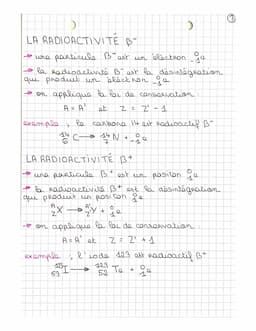 ①
LA RADIOACTIVITÉ β⁻
→ une particule β⁻ est un électron ⁰₋₁e
→ la radioactivité β⁻ est la désintégration
qui produit un électron ⁰₋₁e
→ on applique la loi de conservation
A = A' et Z = Z' - 1
exemple : le carbone 14 est radioactif β⁻
¹⁴₆C → ¹⁴₇N + ⁰₋₁e
LA RADIOACTIVITÉ β⁺
→ une particule β⁺ est un positon ⁰₁e
→ la radioactivité β⁺ est la désintégration
qui produit un positon ⁰₁e
ᴬ_Z X → ᴬ'_Z' Y + ⁰₁e
→ on applique la loi de conservation
A = A' et Z = Z' + 1
exemple : l'iode 123 est radioactif β⁺
¹²³₅₃I → ¹²³₅₂Te + ⁰₁e